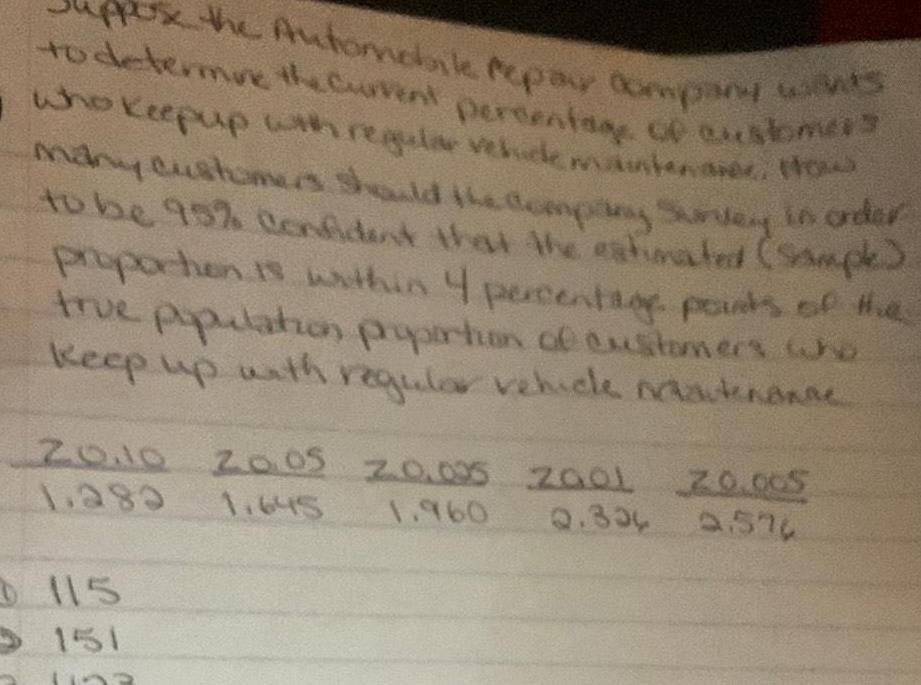 Suppose the Automobile repair company wants
to determine the current percentage of customers
who keep up with regular vehicle maintenance. How
many customers should the company survey in order
to be 95% confident that the estimated (sample)
proportion is within 4 percentage points of the
true population proportion of customers who
keep up with regular vehicle maintenance
Z0.10 Z0.05 Z0.025 Z0.01 Z0.005
1.282 1.645 1.960 2.326 2.576
① 115
② 151